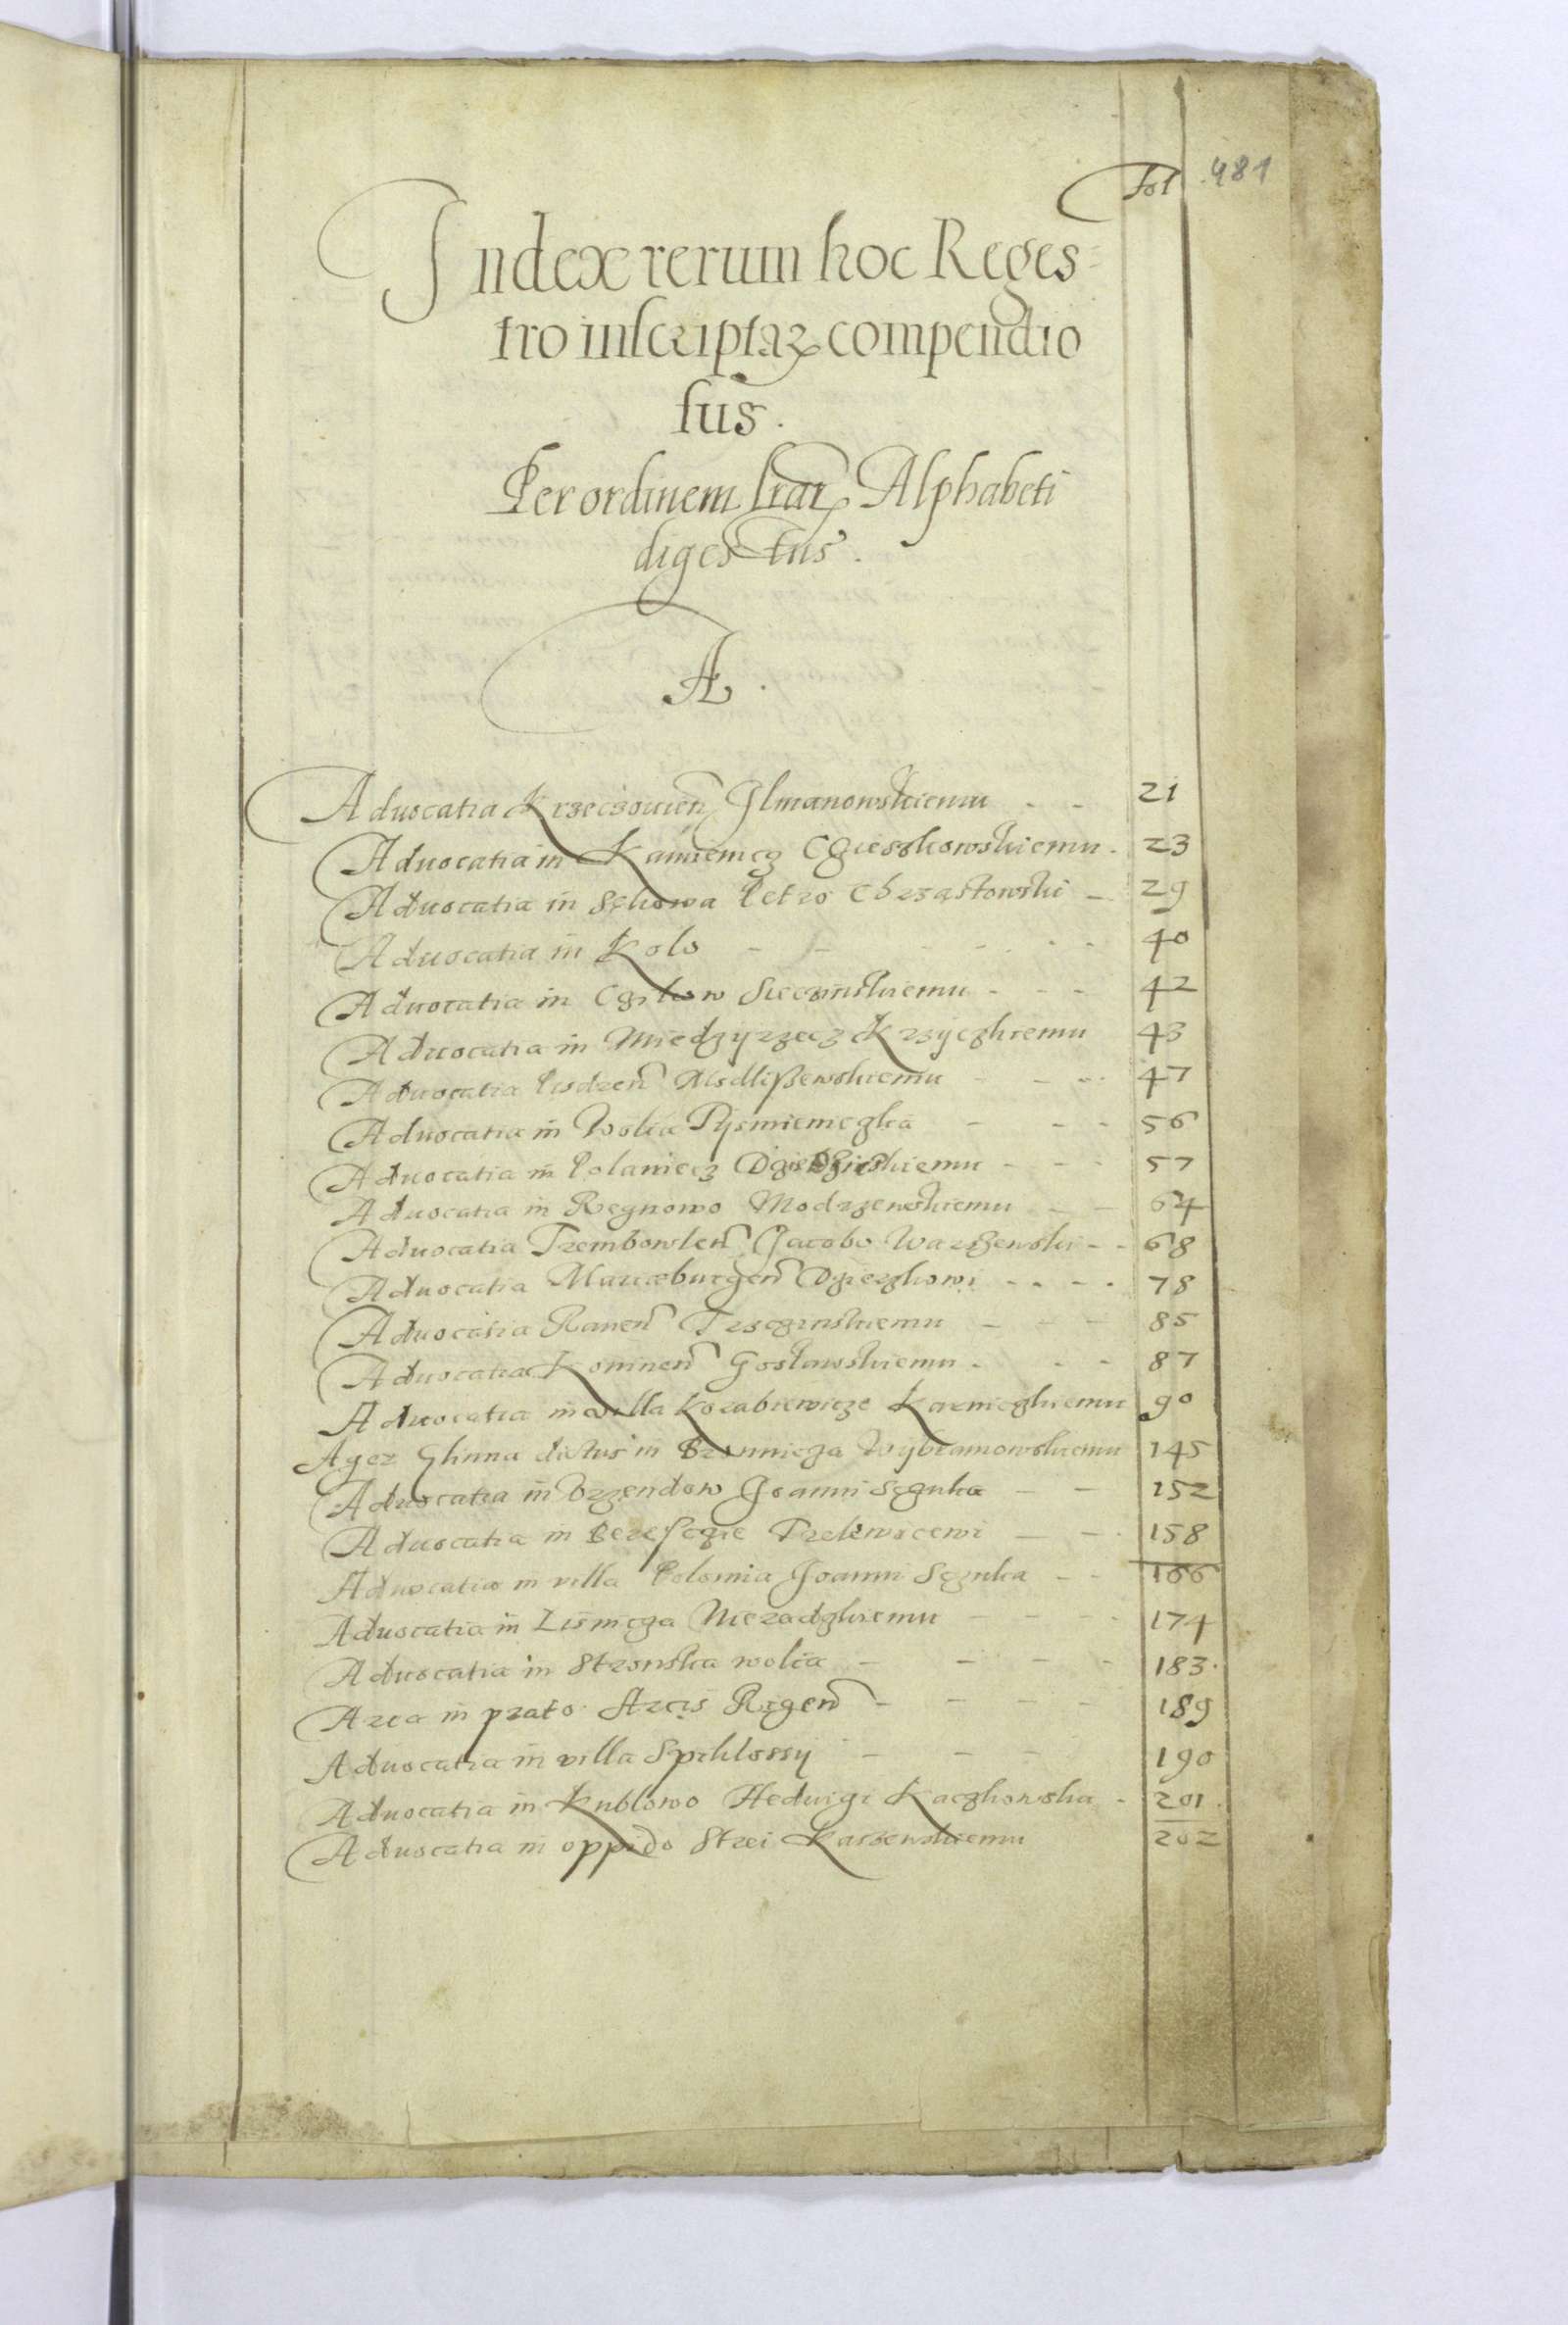 Fol 481
Index rerum hoc Reges=
tro inscriptaꝝ compendio
sus.
Per ordinem lrãꝝ Alphabeti
digestus.
A.
Aduocatia Krzeczouieñ Ilmanowskiemu - - 21
Aduocatia in Kamiemcz Czieszkowskiemu. 23
Aduocatia in Sękowa Petro Chrząstowski - 29
Aduocatia in Kolo - - - - - - 40
Aduocatia in Czchow Sieczinskiemu - - - 42
Aduocatia in Miedzyrzecz Krzyczkiemu 43
Aduocatia Pisdreñ Modlißewskiemu - - - 47
Aduocatia in Wolia Pysmiemczka - - - 56
Aduocatia in Polaniecz - - - 57
Aduocatia in Regnowo Modrzewskiemu - - 64
Aduocatia Trembowleñ Jacobo Warzßewski - - 68
Aduocatia Mariæburgeñ Dzierzkowi - - - . 78
Aduocatia Raueñ Trzczinskiemu - - - 85
Aduocatia Konineñ Gosławskiemu - - - 87
Aduocatia in villa Korabiewicze Karniczkiemu 90
Ager Glinna dictus in Bronnicza Wybranowskiemu 145
Aduocatia in Vrzendow Joanni Sczuka - - 152
Aduocatia in Beresczie Trelewicewi - - . 158
Aduocatia in villa Polomia Joanni Sczuka - - 166
Aduocatia in Lismcza Niezadzkiemu - - - 174
Aduocatia in Stronska wolia - - - - 183.
Area in prato Arcis Rigeñ - - - - 189
Aduocatia in villa Spiklossy - - - 190
Aduocatia in Kublowo Heduigi Kaczkowska - 201.
Aduocatia in oppido Strei Karsewskiemu 202